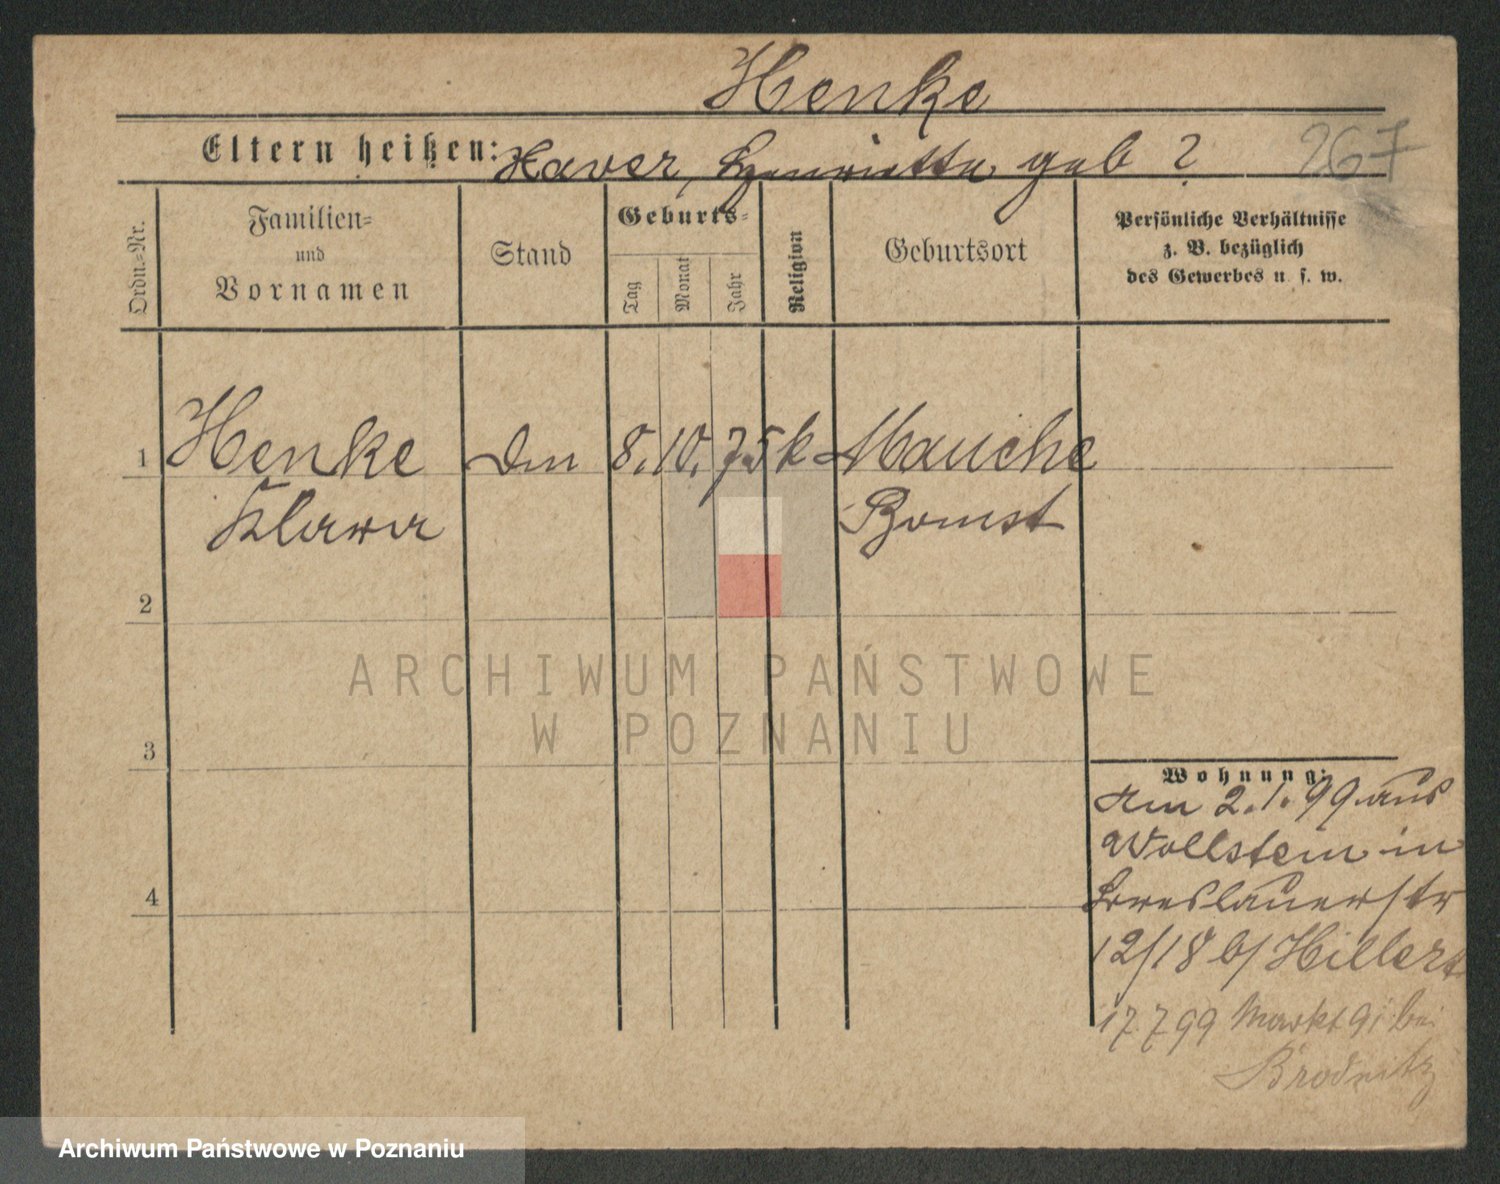 Henke
Eltern heißen: Xaver, Henriette geb ?
267
Ordn.=Nr.
Familien=
und
Vornamen
Stand
Geburts=
Tag
Monat
Jahr
Religion
Geburtsort
Persönliche Verhältnisse
z. B. bezüglich
des Gewerbes u. s. w.
1 Henke 8. 10. 75 k Mauche
Klara Bomst
2
3
4
Wohnung:
Am 2. 1. 99 aus
Wollstein in
Breslauerstr
12/18 b/ Hillert
17 7 99 Markt 91 bei
Brodnitz
ARCHIWUM PAŃSTWOWE
W POZNANIU
Archiwum Państwowe w Poznaniu